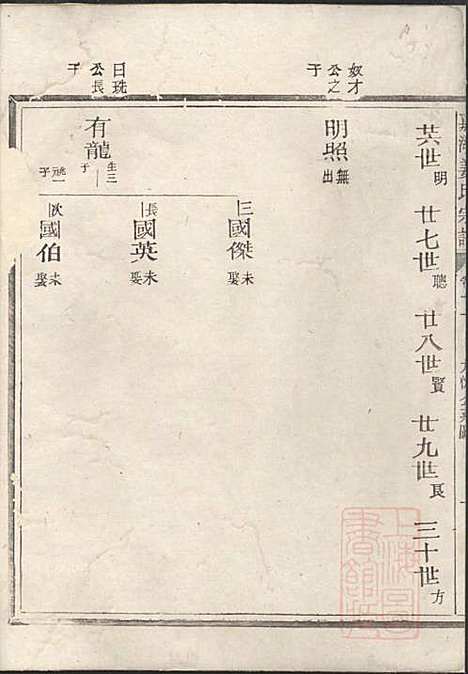 廿世明 廿七世聽 廿八世賢 廿九世良 三十世方
奴才公之子
明照 無出
日珗公長子
有龍 生三子
三 國傑 未娶
長 國英 未娶
次 國伯 未娶
上海圖書館藏